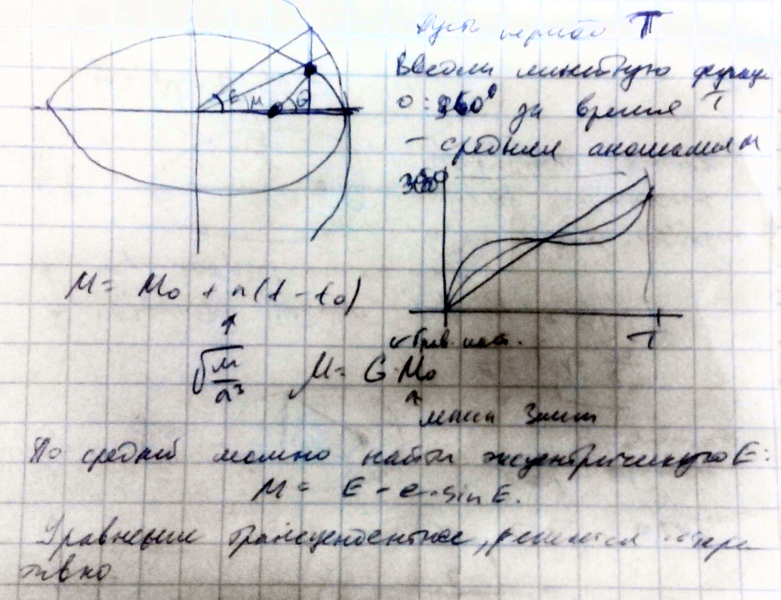 Пусть период T
Ввели линейную функц
0:360° за время T
– средняя аномалия M
360
E M θ
M = M₀ + n(t - t₀)
T
√(μ/a³)
← Грав. пост.
μ = G·M₀
масса Земли
По средней можно найти эксцентрическую E:
M = E - e·sin E.
Уравнение трансцендентное, решается итера
тивно